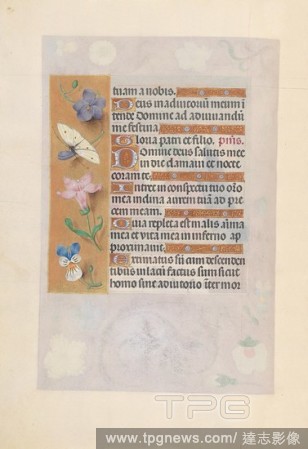 tuam a nobis.
Deus in adiutoriū meum i
tende Domine ad adiuuandū
me festina.
Gloria patri et filio. p̄ms.
Domine deus salutis mee
in die clamaui et nocte
coram te.
Intret in conspectu tuo oro
mea inclina aurem tuā ad pre
cem meam.
Quia repleta est malis aīma
mea et vita mea in inferno ap
propinquauit.
Estimatus sū cum descenden
tibus in lacū factus sum sicut
homo sine adiutorio inter mor
TPG
www.tpgnews.com/ 達志影像